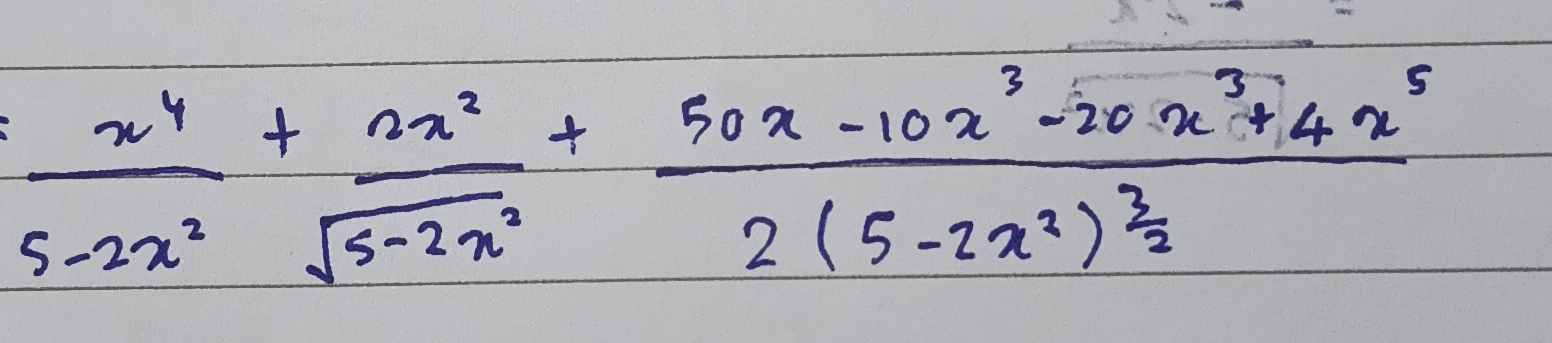 = x⁴/(5-2x²) + 2x²/√(5-2x²) + (50x - 10x³ - 20x³ + 4x⁵)/(2(5-2x²)^(3/2))